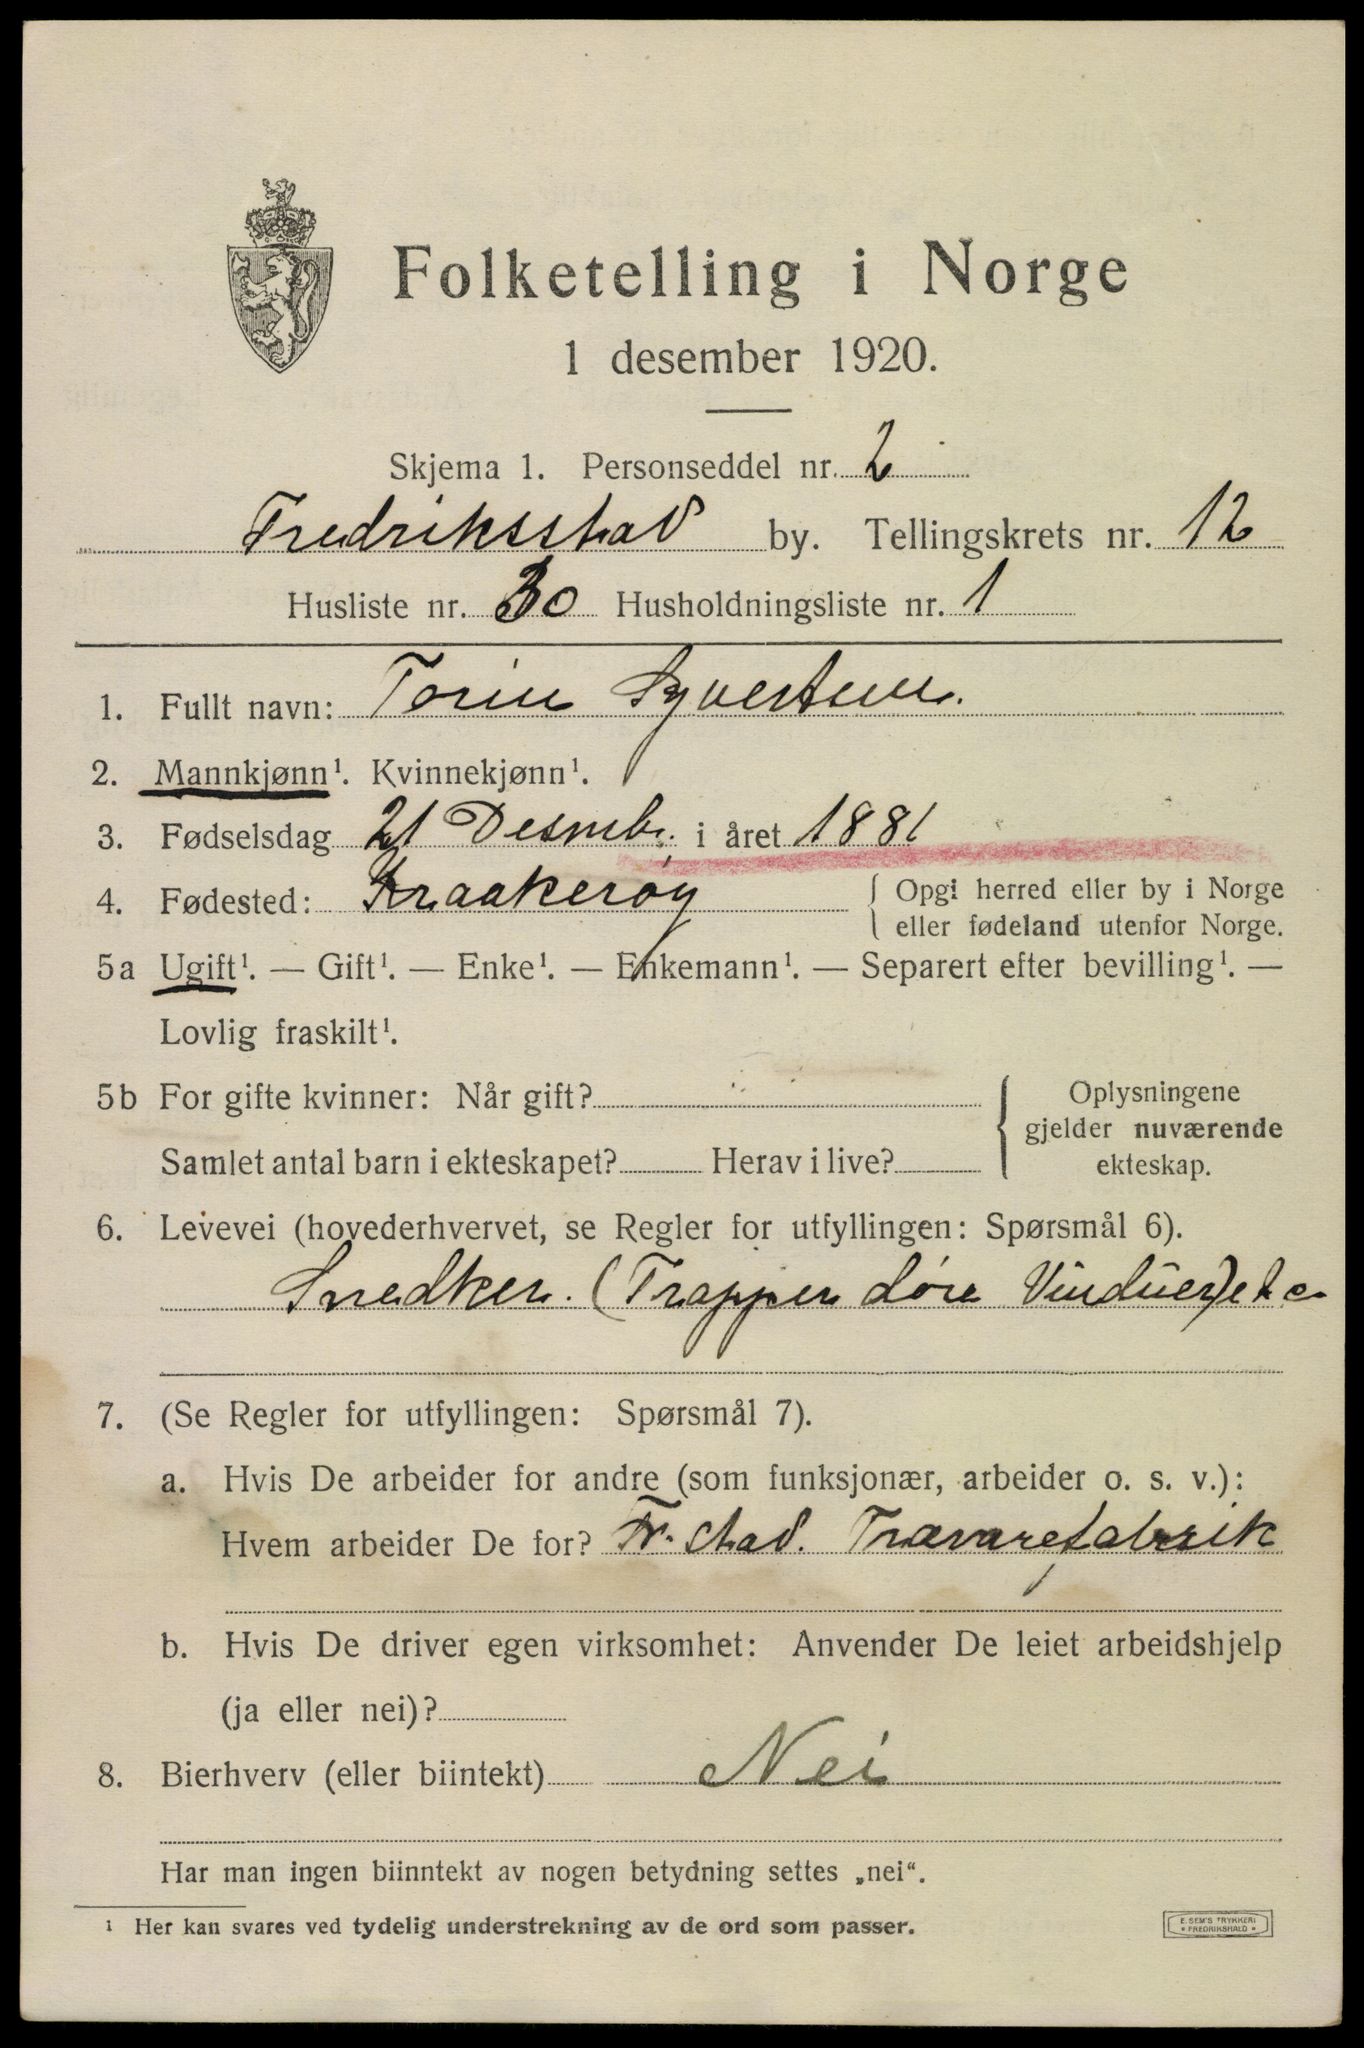 Folketelling i Norge
1 desember 1920.
Skjema 1. Personseddel nr. 2
Fredriksstad by. Tellingskrets nr. 12
Husliste nr. 30 Husholdningsliste nr. 1
1. Fullt navn: Torin Syvertsen.
2. Mannkjønn¹. Kvinnekjønn¹.
3. Fødselsdag 21 Desmb. i året 1881
4. Fødested: Kraakerøy { Opgi herred eller by i Norge
eller fødeland utenfor Norge.
5a Ugift¹. — Gift¹. — Enke¹. — Enkemann¹. — Separert efter bevilling¹. —
Lovlig fraskilt¹.
5b For gifte kvinner: Når gift? { Oplysningene
gjelder nuværende
Samlet antal barn i ekteskapet? Herav i live? ekteskap.
6. Levevei (hovederhvervet, se Regler for utfyllingen: Spørsmål 6).
Snedker. (Trapper døre Vinduer) etc
7. (Se Regler for utfyllingen: Spørsmål 7).
a. Hvis De arbeider for andre (som funksjonær, arbeider o. s. v.):
Hvem arbeider De for? Fr. stad. Trævarefabrik
b. Hvis De driver egen virksomhet: Anvender De leiet arbeidshjelp
(ja eller nei)?
8. Bierhverv (eller biintekt) Nei
Har man ingen biinntekt av nogen betydning settes „nei“.
¹ Her kan svares ved tydelig understrekning av de ord som passer.
E. SEM'S TRYKKERI
• FREDRIKSHALD •